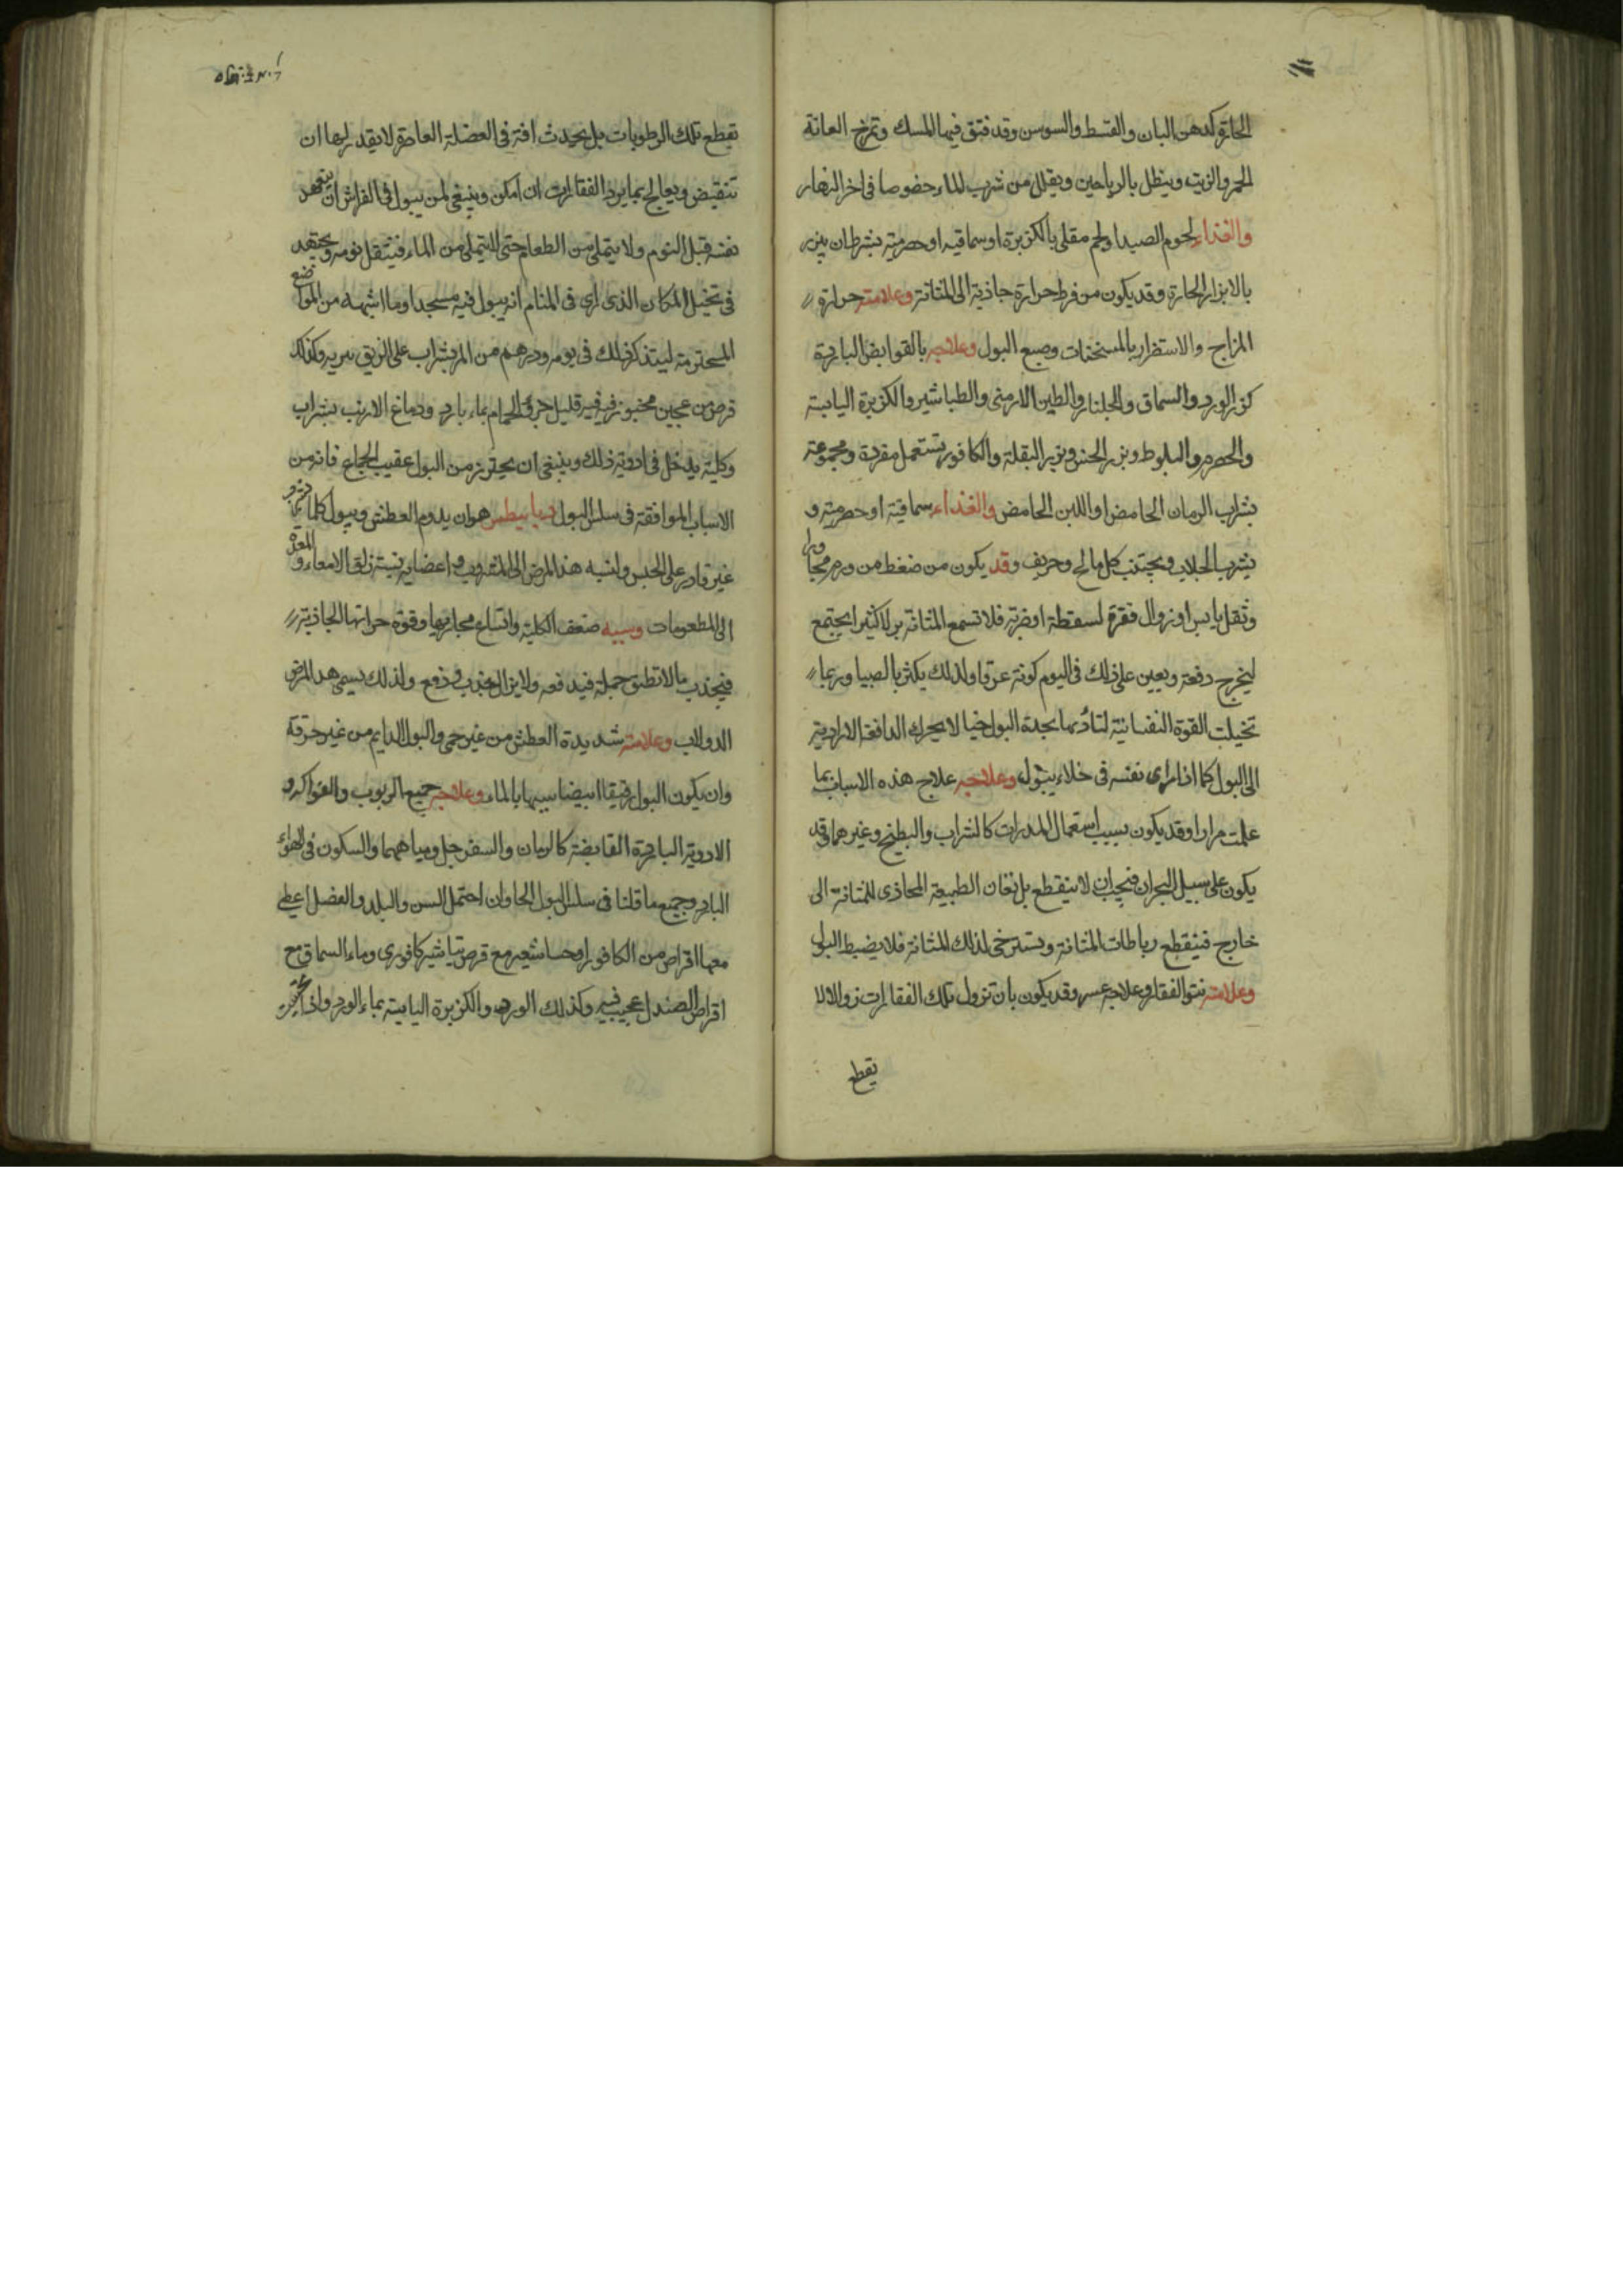 الحارة كدهن البان والقسط والسوسن وقد فتق فيها المسك وتمرخ العانة
بالخمر والزيت وينطل بالرياحين ويقلل من شرب الماء وخصوصا فى اخر النهار
والغذاء لحوم الصيد اولحم مقلى بالكزبرة او سماقيه او حصرميه بشرط ان يبزر
بالابزار الحارة وقد يكون من فرط حرارة جاذبة الى المثانة وعلامته حرارة
المزاج والاستضرار بالمسخنات وصبغ البول وعلاجه بالقوابض الباردة
كبزر الورد والسماق والجلنار والطين الارمنى والطباشير والكزبرة اليابسة
والحصرم والبلوط وبزر الخس وبزر البقلة والكافور تستعمل مفردة ومجموعة
بشراب الرمان الحامض او اللبن الحامض والغذاء سماقية او حصرمية و
يشرب الجلاب ويجتنب كل مالح وحريف وقد يكون من ضغط من ورم مجاور
وثقل يابس او زوال فقرة لسقطة او ضربة فلا تسع المثانة بولا كثيرا يجتمع
ليخرج دفعة ويعين على ذلك فى النوم كونه غرقا ولذلك يكثر بالصبيا وربما
تخيلت القوة النفسانية لتأذيها بحدة البول خيالا يحرك الدافعة الارادية
الى البول كما اذا راى نفسه فى خلاء يبول وعلاجه علاج هذه الاسباب بما
علمت مرارا وقد يكون بسبب استعمال المدرات كالشراب والبطيخ وغيرهما وقد
يكون على سبيل البحران فيجب ان لا ينقطع بل تعان الطبيعة المحاذى للمثانة الى
خارج فينقطع رباطات المثانة وتسترخى لذلك المثانة فلا يضبط البول
وعلامته نتو الفقار وعلاجه عسر وقد يكون بان تزول تلك الفقارات زوالا لا
تقطع
تقطع تلك الرطوبات بل يحدث افة فى العضلة العاصرة لا يقدر لها ان
تنقبض ويعالج بما يرد الفقارات ان امكن وينبغى لمن يبول فى الفراش ان يتعهد
نفسه قبل النوم ولا يتملى من الطعام حتى لا يتملى من الماء فيثقل نومه ويجتهد
فى تخيل المكان الذى راى فى المنام انه يبول فيه مسجدا وما اشبهه من المواضع
المحترمة ليتذكر ذلك فى نومه ودرهم من المر بشراب على الريق يبريه وكذلك
قرص من عجين مخبوز فيه قليل خرؤ الحمام بماء بارد ودماغ الارنب بشراب
وكليته يدخل فى ادوية ذلك وينبغى ان يحترز من البول عقيب الجماع فانه من
الاسباب الموافقة فى سلس البول ديابيطس هو ان يدوم العطش ويبول كلما
غير قادر على الحبس ونسبة هذا المرض الى المشروب واعضايه نسبة زلق الامعاء والمعدة
الى المطعومات وسببه ضعف الكلية واتساع مجاريها وقوة حرارتها الجاذبة
فيجذب ما لا تطيق حمله فيدفعه ولا يزال يجذب ويدفع ولذلك يسمى هذا المرض
الدولاب وعلامته شديدة العطش من غير حمى والبول الدايم من غير حرقة
وان يكون البول رقيقا ابيضا شبيها بالماء وعلاجه جميع الربوب والفواكه و
الادوية الباردة القابضة كالرمان والسفرجل ومياههما والسكون فى الهواء
البارد وجميع ما قلنا فى سلس البول الحار وان احتمل السن والبلد والفصل اعطى
معها اقراص من الكافور او حسا شعير مع قرص تباشير كافورى وماء السماق مع
اقراص الصندل عجيب فيه وكذلك الورد والكزبرة اليابسة بماء الورد واذا